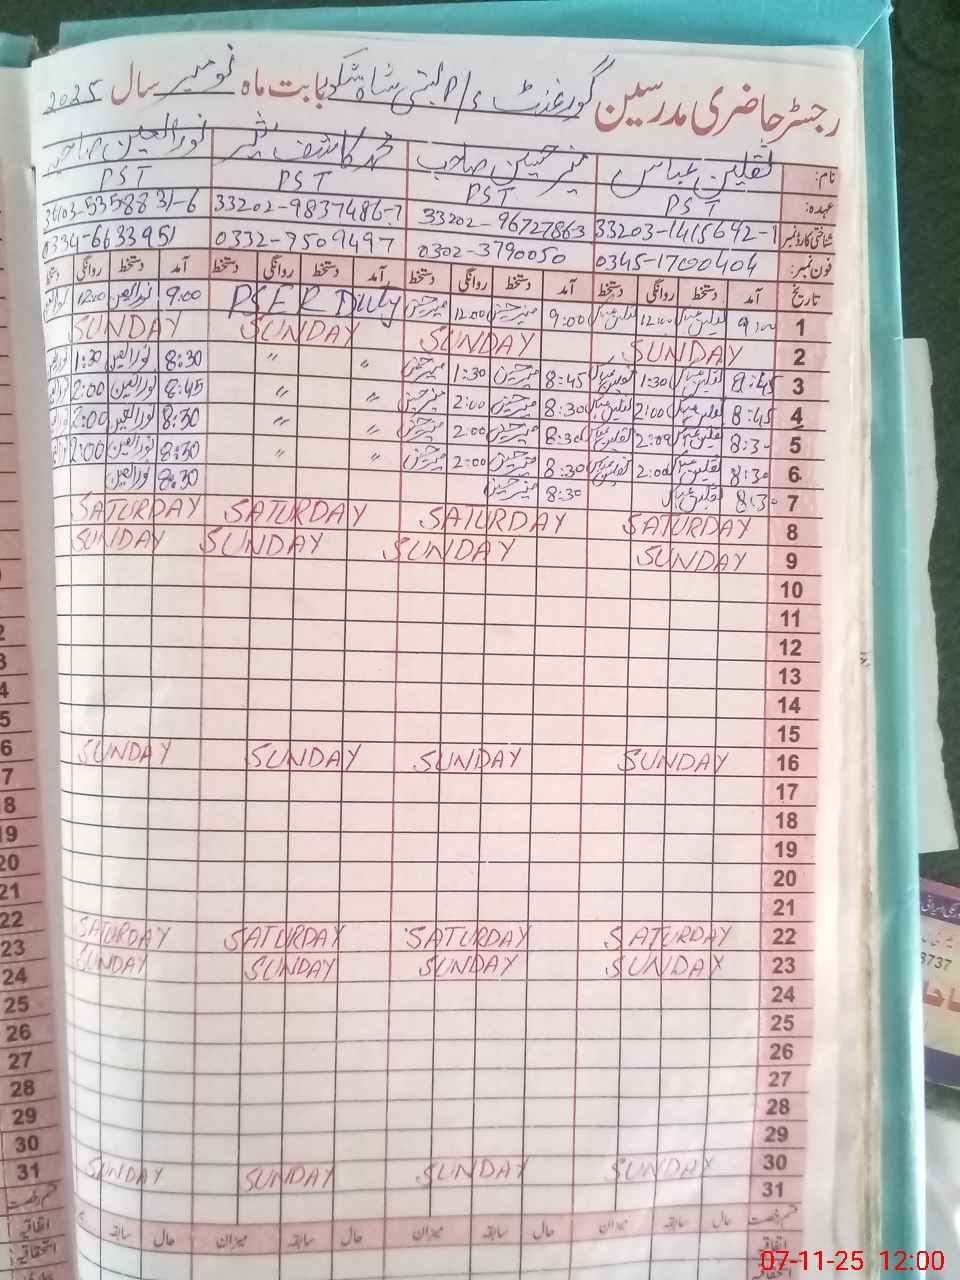 رجسٹر حاضری مدرسین گورنمنٹ P/S بستی بابت ماہ نومبر سال 2025
نام: ثقلین عباس منیر حسین صاحب محمد کاشف بشیر نورالعین صاحبہ
عہدہ: PST PST PST PST
شناختی کارڈ نمبر 33203-1415692-1 33202-9672786-3 33202-9837486-7 535883/-6
فون نمبر: 0345-1700404 0302-3790050 0332-7509497 0334-6633951
تاریخ آمد دستخط روانگی دستخط آمد دستخط روانگی دستخط آمد دستخط روانگی دستخط آمد دستخط روانگی دستخط
1 9:00 ثقلین عباس 12:00 ثقلین عباس 9:00 منیر حسین 12:00 منیر حسین PSER Duty 9:00 نورالعین 12:00
2 SUNDAY SUNDAY SUNDAY SUNDAY
3 8:45 ثقلین عباس 1:30 ثقلین عباس 8:45 منیر حسین 1:30 منیر حسین " " 8:30 نورالعین 1:30
4 8:45 ثقلین عباس 2:00 ثقلین عباس 8:30 منیر حسین 2:00 منیر حسین " " 8:45 نورالعین 2:00
5 8:30 ثقلین عباس 2:00 ثقلین عباس 8:30 منیر حسین 2:00 منیر حسین " " 8:30 نورالعین 2:00
6 8:30 ثقلین عباس 2:00 ثقلین عباس 8:30 منیر حسین 2:00 منیر حسین " " 8:30 نورالعین 2:00
7 8:30 ثقلین عباس 8:30 منیر حسین 8:30 نورالعین
8 SATURDAY SATURDAY SATURDAY SATURDAY
9 SUNDAY SUNDAY SUNDAY SUNDAY
10
11
12
13
14
15
16 SUNDAY SUNDAY SUNDAY SUNDAY
17
18
19
20
21
22 SATURDAY SATURDAY SATURDAY SATURDAY
23 SUNDAY SUNDAY SUNDAY SUNDAY
24
25
26
27
28
29
30 SUNDAY SUNDAY SUNDAY SUNDAY
31
قسم رخصت حال سابقہ میزان حال سابقہ میزان حال سابقہ میزان حال سابقہ
اتفاقیہ
07-11-25 12:00
19
20
21
22
23
24
25
26
27
28
29
30
31
قسم رخصت
اتفاقیہ
استحقاقیہ
8737